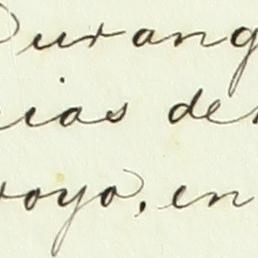 Durang
cias de
royo, en